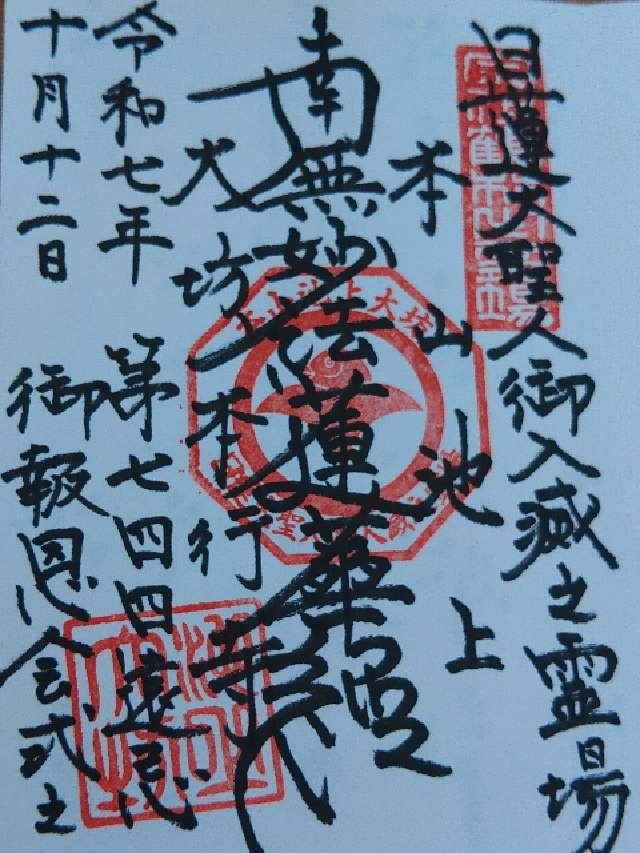 日蓮大聖人御入滅之霊場
本山池上
南無妙法蓮華経
大坊本行寺
令和七年 第七四四遠忌
十月十二日 御報恩会式之